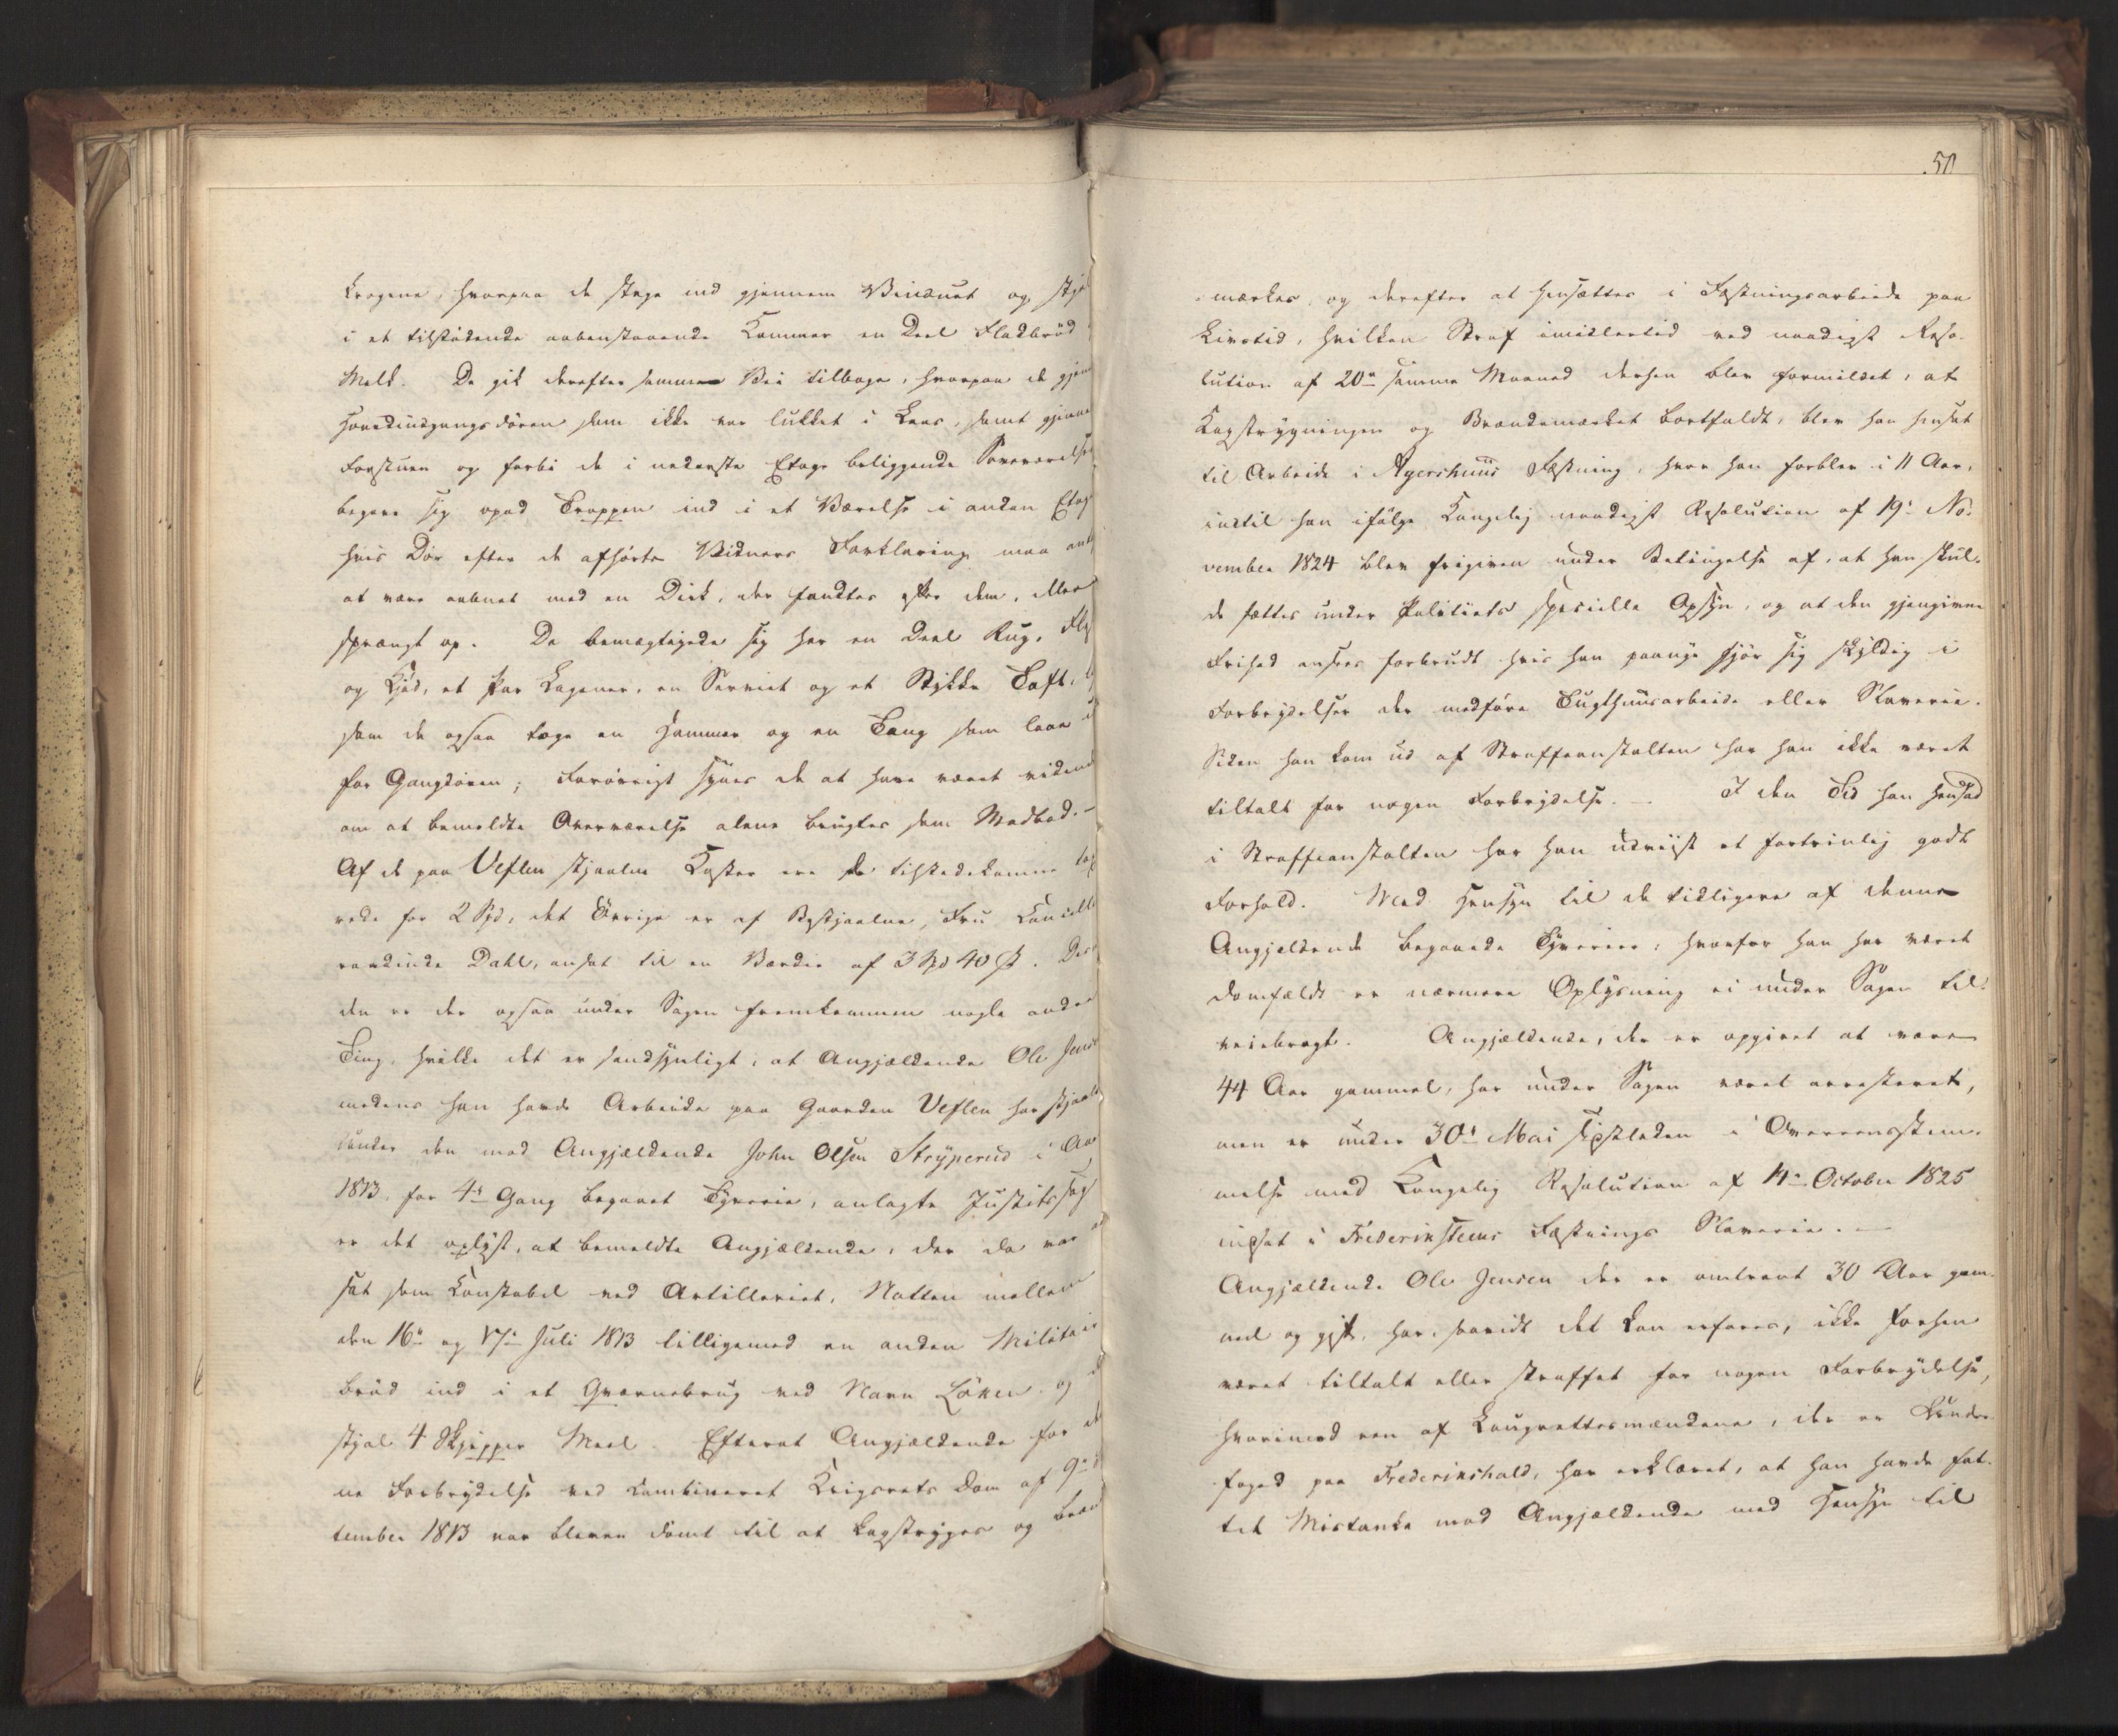 Krogene, hvorpaa de stege ind gjennem Vinduet og stjal
i et tilstødende aabenstaaende Kammer en Deel Fladbrød
Melk. De gik derefter samme Vei tilbage, hvorpaa de gjen
Hovedindgangsdøren som ikke var lukket i Laas, samt gjennem
Forstuen og forbi de i nederste Etage beliggende Soveværelser
begave sig opad Trappen ind i et Værelse i anden Etage
hvis Dør efter de afhørte Vidners Forklaring maa
at være aabnet med en Dirk, der fandtes efter dem, eller
sprængt op. De bemægtigede sig her en Deel Rug,
og Kjød, et Par Lagener, en Serviet og et Stykke Taft,
som de ogsaa toge en Hammer og en Tang som laae
for Gangdøren; Forøvrigt synes de at have været vidende
om at bemeldte Overværelse alene brugtes som Madbod. –
Af de paa Veflen stjaalne Koster ere de tilstedekomne tax
rede for 2 Spd, det Øvrige er af Bestjaalne, Fru Cancelli
raadinde Dahl, ansat til en Værdie af 3 Spd 40 ß. Des
den er der ogsaa under Sagen fremkommen nogle andre
Ting, hvilke det er sandsynligt, at Angjældende Ole Jensen
medens han havde Arbeide paa Gaarden Veflen har stjaalet
Under den mod Angjældende John Olsen Stryperud i Aar
1813, for 4de Gang begaaet Tyverie, anlagte Justitssag
er det oplyst, at bemeldte Angjældende, der da var
sat som Constabel ved Artilleriet, Natten mellem
den 16de og 17de Juli 1813 tilligemed en anden Militair
brød ind i et Qværnebrug ved Navn Løken og
stjal 4 Skjepper Meel. Efterat Angjældende for
ne Forbrydelse ved combineret Krigsrets Dom af 9de
tember 1813 var bleven dømt til at kagstryges og bræn
50
mærkes, og derefter at hensættes i Fæstningsarbeide paa
Livstid, hvilken Straf imidlertid ved naadigst Reso-
lution af 20de samme Maaned dersom blev formildet, at
Kagstrygningen og Brændemærket bortfaldt, blev han hensat
til Arbeide i Agershuus Fæstning, hvor han forblev i 11 Aar,
indtil han ifølge Kongelig naadigst Resolution af 19de No-
vember 1824 blev frigiven under Betingelse af, at han skul-
de sættes under Politiets specielle Opsyn, og at den gjengivne
Frihed ansees forbrudt hvis han paanye gjør sig skyldig i
Forbrydelser der medføre Tugthuusarbeide eller Slaverie.
Siden han kom ud af Straffeanstalten har han ikke været
tiltalt for nogen Forbrydelse. – I den Tid han hensad
i Straffeanstalten har han udviist et fortrinlig godt
Forhold. Med Hensyn til de tidligere af denne
Angjældende begaaede Tyverier, hvorfor han har været
domfældt er nærmere Oplysning ei under Sagen til-
veiebragt. Angjældende, der er opgivet at være
44 Aar gammel, har under Sagen været arresteret,
men er under 30te Mai sidstleden i Overeensstem-
melse med Kongelig Resolution af 14de October 1825
indsat i Frideriksteens Fæstnings Slaverie. –
Angjældende Ole Jensen der er omtrent 30 Aar gam-
mel og gift, har, saavidt det kan erfares, ikke forhen
været tiltalt eller straffet for nogen Forbrydelse,
hvorimod een af Laugrettesmændene, der er Under-
foged paa Frederikshald, har erklæret, at han havde fat-
tet Mistanke mod Angjældende med Hensyn til